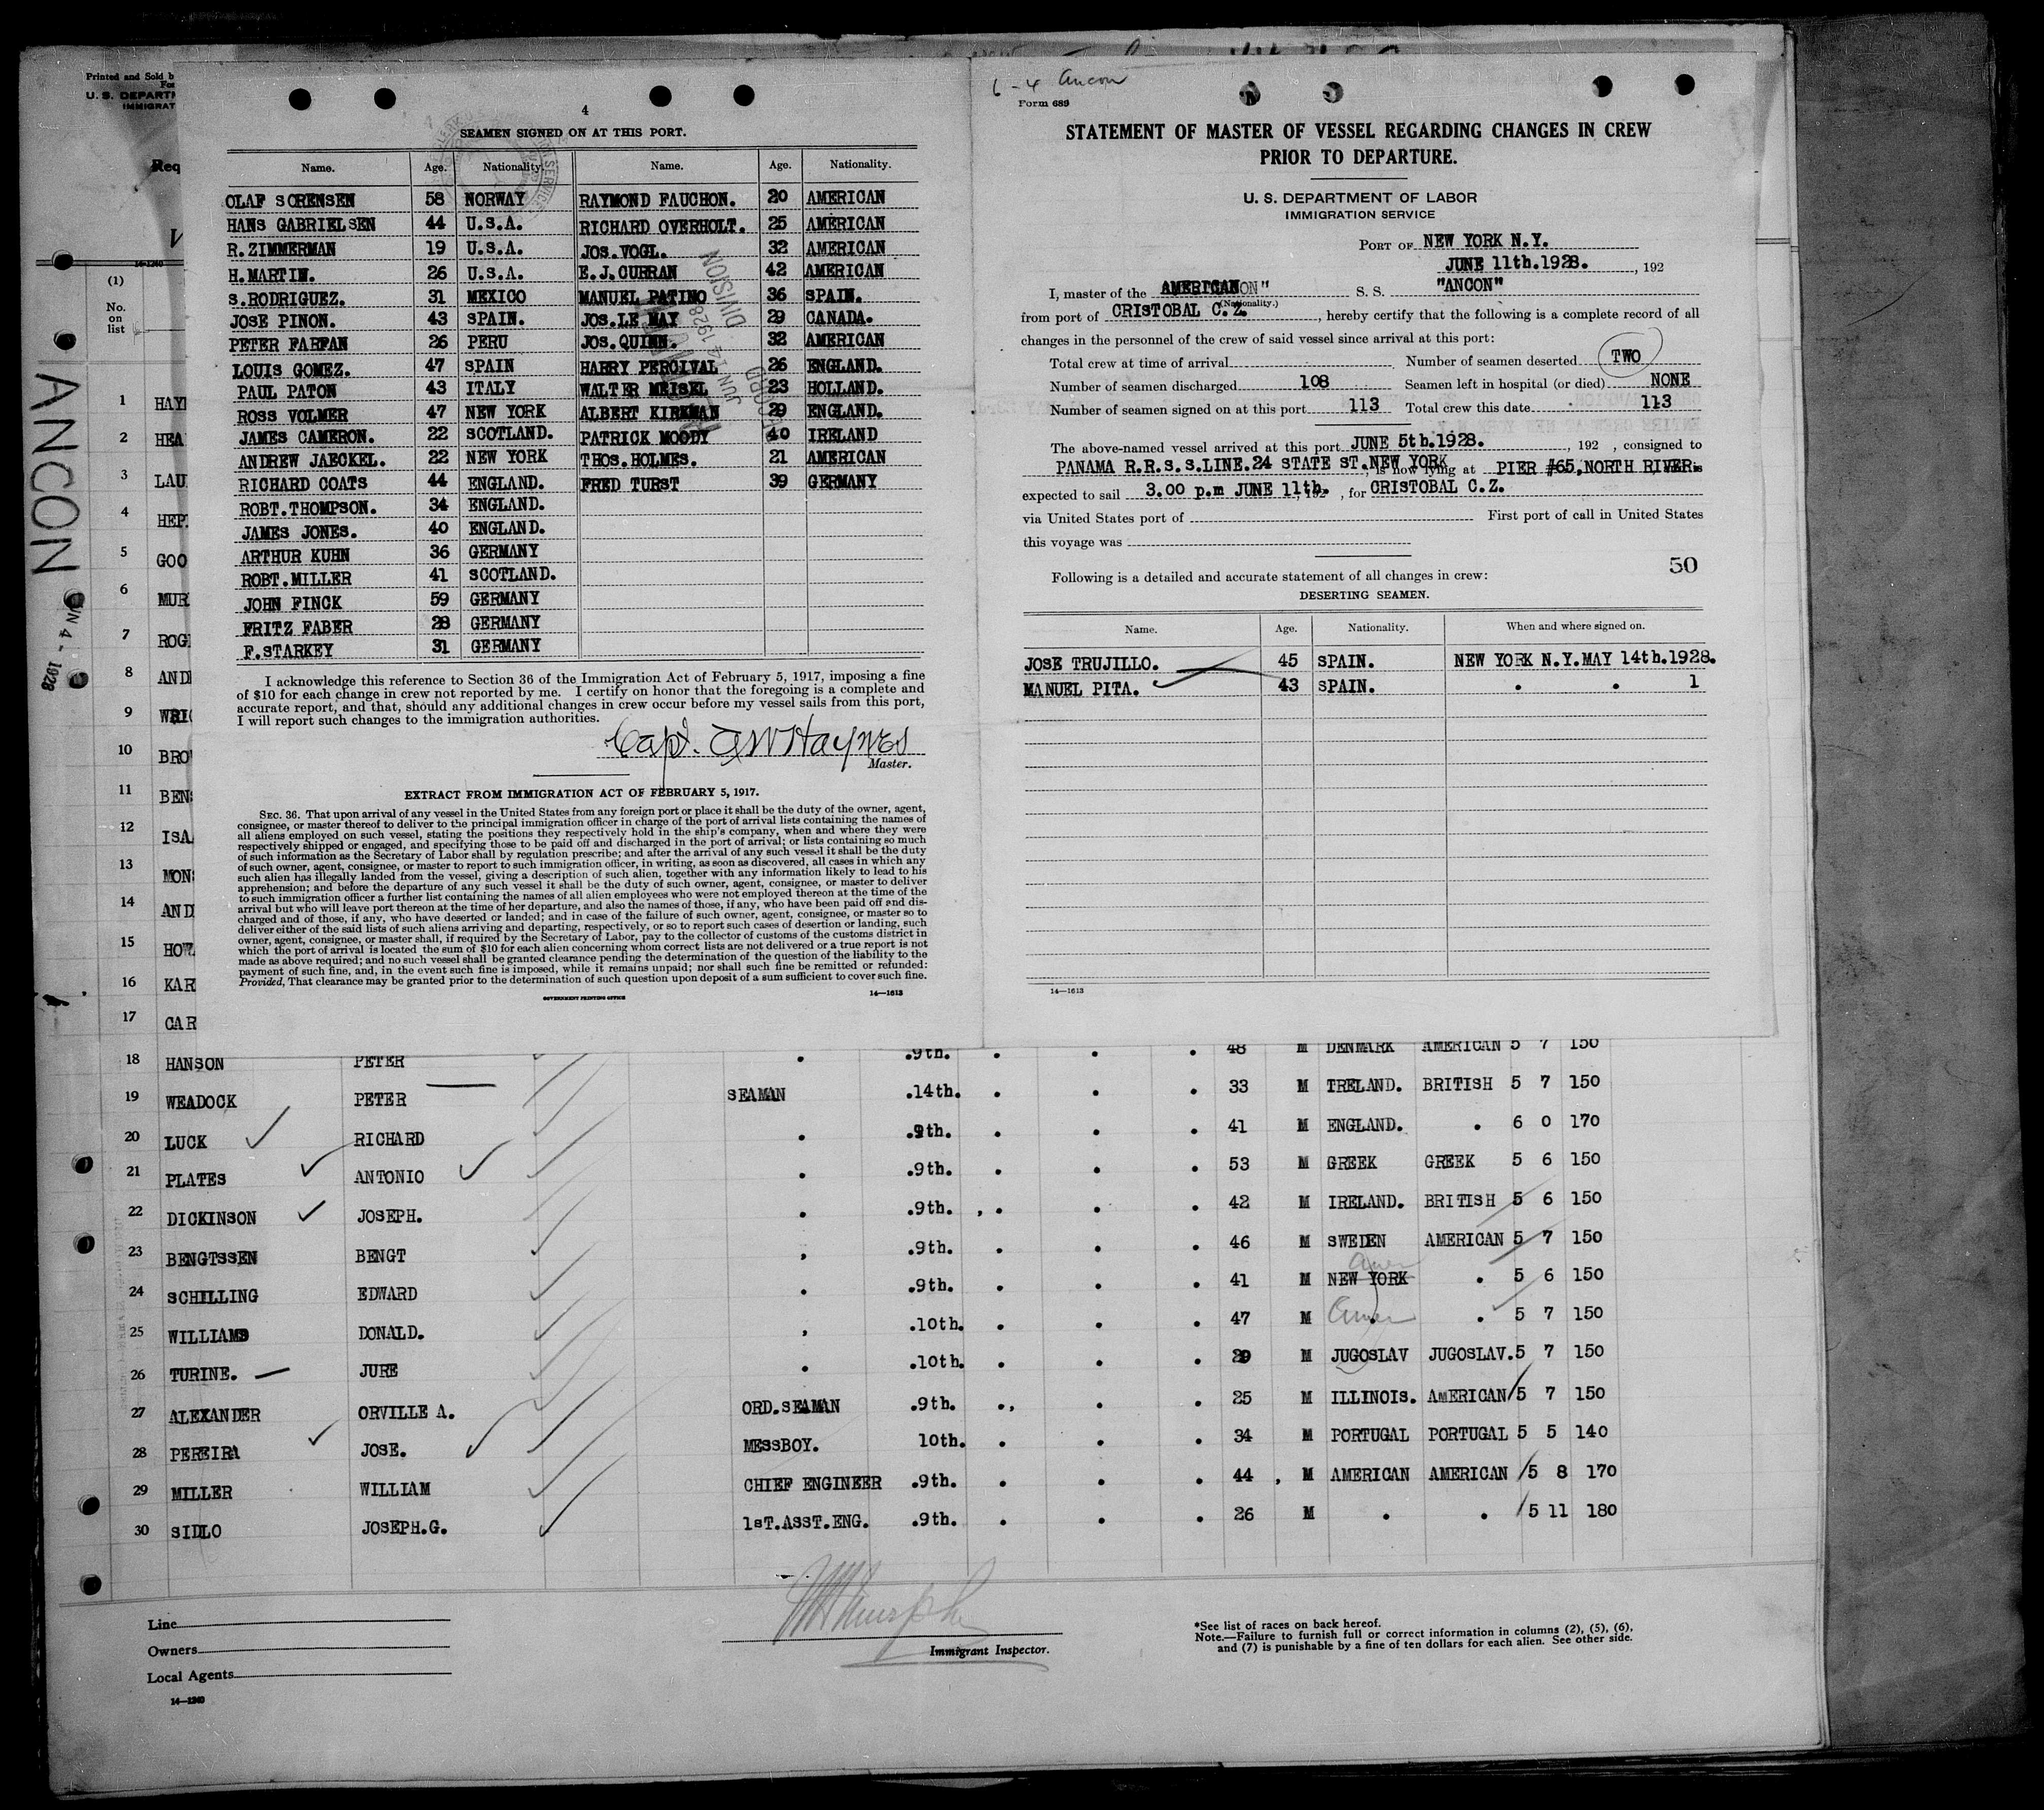 Printed and Sold b
U. S. DEPARTM
IMMIGRAT
Req
14-1240
(1)
No.
on
list
ANCON
JUN 4 - 1928
1 HAY
2 HEA
3 LAU
4 HEP
5 GOO
6 MUR
7 ROG
8 AND
9 WRI
10 BRO
11 BEN
12 ISA
13 MON
14 AND
15 HOW
16 KAR
17 CAR
4
SEAMEN SIGNED ON AT THIS PORT.
Name. Age. Nationality. Name. Age. Nationality.
OLAF SORENSEN 58 NORWAY RAYMOND FAUCHON. 20 AMERICAN
HANS GABRIELSEN 44 U.S.A. RICHARD OVERHOLT. 25 AMERICAN
R.ZIMMERMAN 19 U.S.A. JOS.VOGL. 32 AMERICAN
H.MARTIN. 26 U.S.A. E.J.CURRAN 42 AMERICAN
S.RODRIGUEZ. 31 MEXICO MANUEL PATINO 36 SPAIN.
JOSE PINON. 43 SPAIN. JOS.LE MAY 29 CANADA.
PETER FARFAN 26 PERU JOS.QUINN. 32 AMERICAN
LOUIS GOMEZ. 47 SPAIN HARRY PERCIVAL 26 ENGLAND.
PAUL PATON 43 ITALY WALTER MEISEL 23 HOLLAND.
ROSS VOLMER 47 NEW YORK ALBERT KIRKMAN 29 ENGLAND.
JAMES CAMERON. 22 SCOTLAND. PATRICK MOODY 40 IRELAND
ANDREW JAECKEL. 22 NEW YORK THOS.HOLMES. 21 AMERICAN
RICHARD COATS 44 ENGLAND. FRED TURST 39 GERMANY
ROBT.THOMPSON. 34 ENGLAND.
JAMES JONES. 40 ENGLAND.
ARTHUR KUHN 36 GERMANY
ROBT.MILLER 41 SCOTLAND.
JOHN FINCK 59 GERMANY
FRITZ FABER 28 GERMANY
F.STARKEY 31 GERMANY
DIVISION
JUN 14 1928
RECORD
I acknowledge this reference to Section 36 of the Immigration Act of February 5, 1917, imposing a fine
of $10 for each change in crew not reported by me. I certify on honor that the foregoing is a complete and
accurate report, and that, should any additional changes in crew occur before my vessel sails from this port,
I will report such changes to the immigration authorities.
Capt. GW Haynes
Master.
EXTRACT FROM IMMIGRATION ACT OF FEBRUARY 5, 1917.
SEC. 36. That upon arrival of any vessel in the United States from any foreign port or place it shall be the duty of the owner, agent,
consignee, or master thereof to deliver to the principal immigration officer in charge of the port of arrival lists containing the names of
all aliens employed on such vessel, stating the positions they respectively hold in the ship's company, when and where they were
respectively shipped or engaged, and specifying those to be paid off and discharged in the port of arrival; or lists containing so much
of such information as the Secretary of Labor shall by regulation prescribe; and after the arrival of any such vessel it shall be the duty
of such owner, agent, consignee, or master to report to such immigration officer, in writing, as soon as discovered, all cases in which any
such alien has illegally landed from the vessel, giving a description of such alien, together with any information likely to lead to his
apprehension; and before the departure of any such vessel it shall be the duty of such owner, agent, consignee, or master to deliver
to such immigration officer a further list containing the names of all alien employees who were not employed thereon at the time of the
arrival but who will leave port thereon at the time of her departure, and also the names of those, if any, who have been paid off and dis-
charged and of those, if any, who have deserted or landed; and in case of the failure of such owner, agent, consignee, or master so to
deliver either of the said lists of such aliens arriving and departing, respectively, or so to report such cases of desertion or landing, such
owner, agent, consignee, or master shall, if required by the Secretary of Labor, pay to the collector of customs of the customs district in
which the port of arrival is located the sum of $10 for each alien concerning whom correct lists are not delivered or a true report is not
made as above required; and no such vessel shall be granted clearance pending the determination of the question of the liability to the
payment of such fine, and, in the event such fine is imposed, while it remains unpaid; nor shall such fine be remitted or refunded:
Provided, That clearance may be granted prior to the determination of such question upon deposit of a sum sufficient to cover such fine.
GOVERNMENT PRINTING OFFICE 14—1613
6-4 Ancon
Form 689
STATEMENT OF MASTER OF VESSEL REGARDING CHANGES IN CREW
PRIOR TO DEPARTURE.
U. S. DEPARTMENT OF LABOR
IMMIGRATION SERVICE
PORT OF NEW YORK N.Y.
JUNE 11th.1928. , 192
I, master of the AMERICAN S. S. "ANCON"
(Nationality.)
from port of CRISTOBAL C.Z. , hereby certify that the following is a complete record of all
changes in the personnel of the crew of said vessel since arrival at this port:
Total crew at time of arrival Number of seamen deserted TWO
Number of seamen discharged 108 Seamen left in hospital (or died) NONE
Number of seamen signed on at this port 113 Total crew this date 113
The above-named vessel arrived at this port JUNE 5th.1928. , 192 , consigned to
PANAMA R.R.S.S.LINE.24 STATE ST.NEW YORK, is now lying at PIER #65,NORTH RIVER is
expected to sail 3.00 p.m JUNE 11th. , for CRISTOBAL C.Z.
via United States port of First port of call in United States
this voyage was
50
Following is a detailed and accurate statement of all changes in crew:
DESERTING SEAMEN.
Name. Age. Nationality. When and where signed on.
JOSE TRUJILLO. 45 SPAIN. NEW YORK N.Y.MAY 14th.1928.
MANUEL PITA. 43 SPAIN. . . 1
14—1613
18 HANSON PETER .9th. . . . 48 M DENMARK AMERICAN 5 7 150
19 WEADOCK PETER SEAMAN .14th. . . . 33 M TRELAND. BRITISH 5 7 150
20 LUCK RICHARD . .9th. . . . 41 M ENGLAND. . 6 0 170
21 PLATES ANTONIO . .9th. . . . 53 M GREEK GREEK 5 6 150
22 DICKINSON JOSEPH. . .9th. . . . 42 M IRELAND. BRITISH 5 6 150
23 BENGTSSEN BENGT , .9th. . . . 46 M SWEDEN AMERICAN 5 7 150
Amer
24 SCHILLING EDWARD . .9th. . . . 41 M NEW YORK . 5 6 150
25 WILLIAMS DONALD. , .10th. . . . 47 M Amer . 5 7 150
26 TURINE. JURE . .10th. . . . 29 M JUGOSLAV JUGOSLAV. 5 7 150
27 ALEXANDER ORVILLE A. ORD.SEAMAN .9th. . . . 25 M ILLINOIS. AMERICAN 5 7 150
28 PEREIRA JOSE. MESSBOY. 10th. . . . 34 M PORTUGAL PORTUGAL 5 5 140
29 MILLER WILLIAM CHIEF ENGINEER .9th. . . . 44 , M AMERICAN AMERICAN 5 8 170
30 SIDLO JOSEPH.G. 1sT.ASST.ENG. .9th. . . . 26 M . . 5 11 180
Line
Owners
Local Agents
14—1240
Immigrant Inspector.
*See list of races on back hereof.
Note.—Failure to furnish full or correct information in columns (2), (5), (6),
and (7) is punishable by a fine of ten dollars for each alien. See other side.